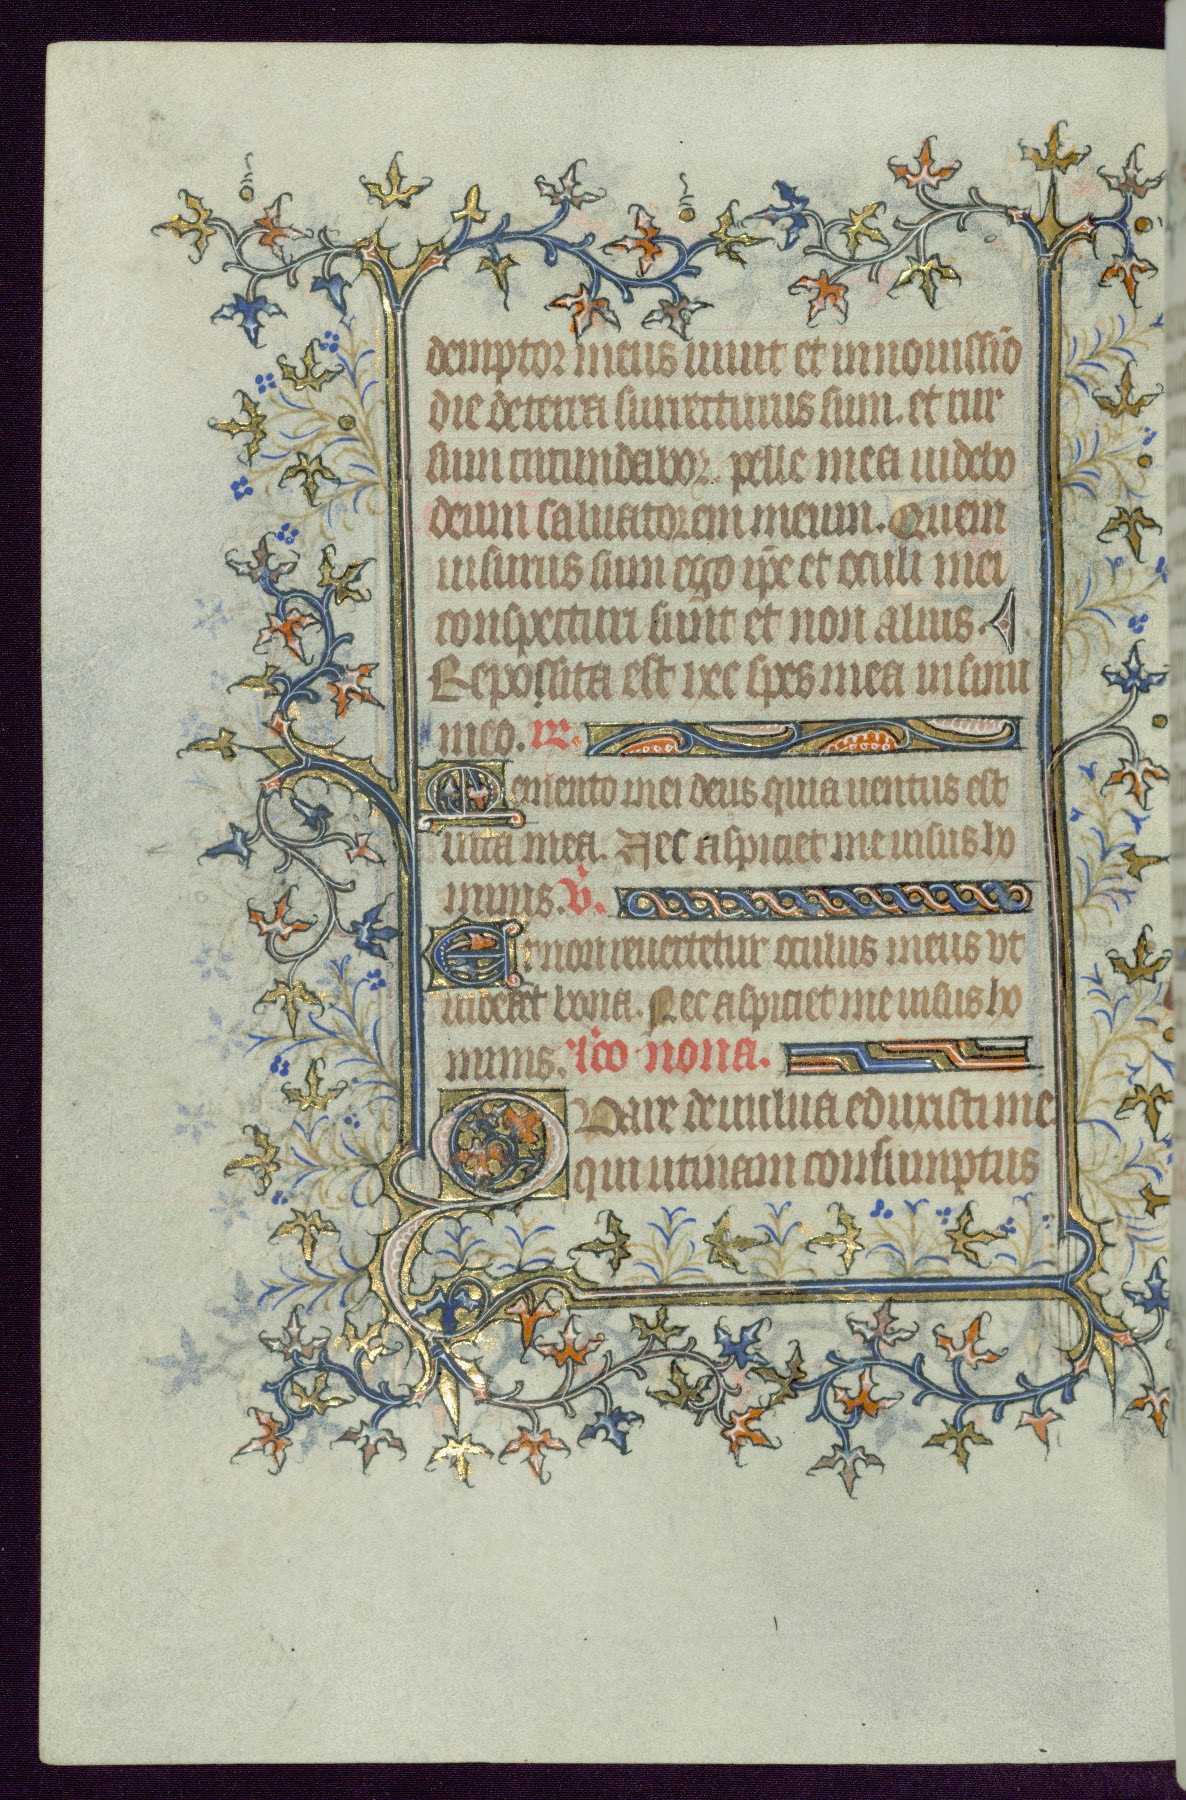 demptor meus uiuit et in nouissīo
die de terra surrecturus sum. et rur
sum circundabor. pelle mea uidebo
deum saluatorem meum. Quem
uisurus sum ego ip̄e et oculi mei
conspecturi sunt et non alius.
Reposita est hec spes mea in sinu
meo. R.
Memento mei deus quia uentus est
uita mea. Nec aspiciet me uisus ho
minis. V̄.
Et non reuertetur oculus meus vt
uideat bona. Nec aspiciet me uisus ho
minis. lc̄o nona.
Quare de uulua eduxisti me
qui utinam consumptus